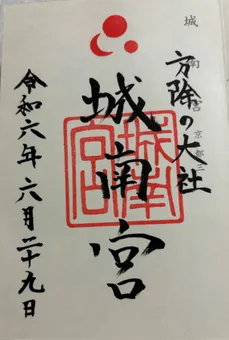 城南宮 京都
方除の大社
城南宮
城南宮印
令和六年六月二十九日